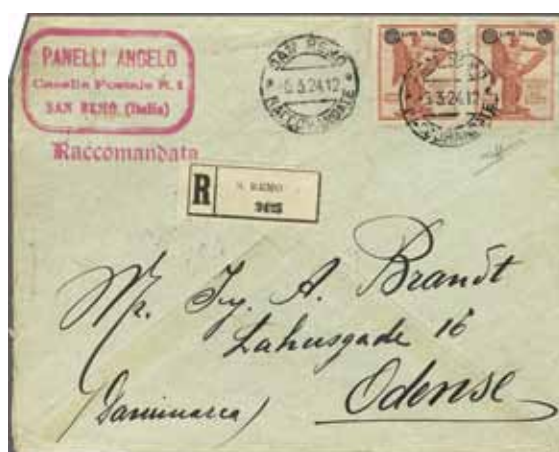 PANELLI ANGELO
Casella Postale N. 1
SAN REMO (Italia)
Raccomandata
SAN REMO
5.3.24.12
RACCOMANDATE
LIRE UNA
LIRE UNA
5.3.24.12
R
S. REMO
Mr. Ing. A. Brandt
Lahnsgade 16
Odense
(Danimarca)